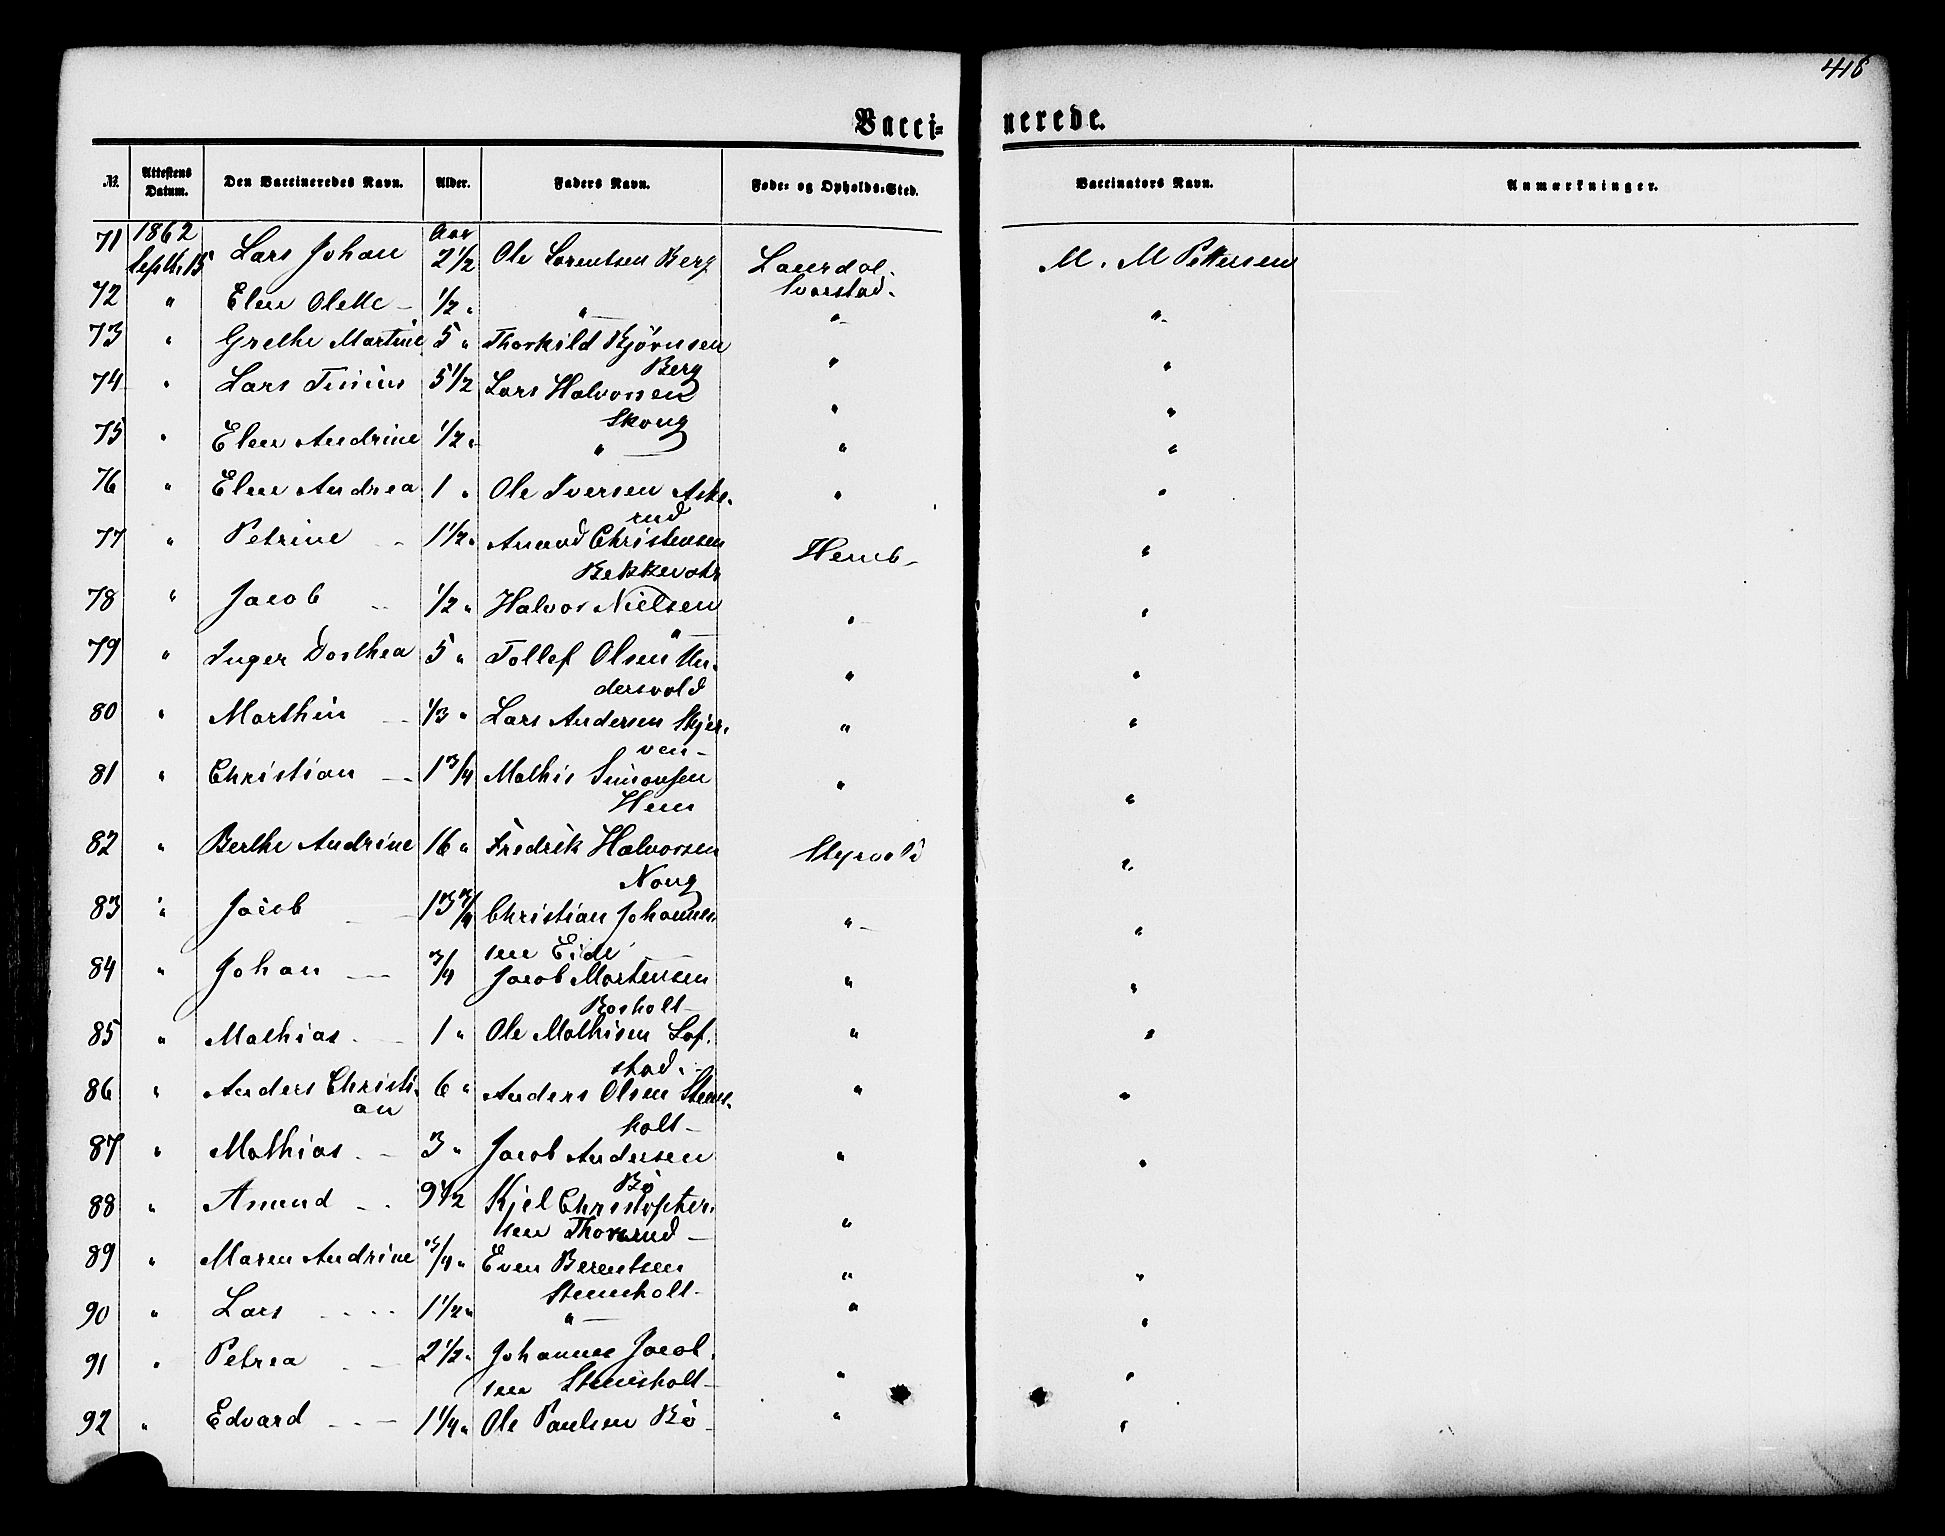 418
Vacci- nerede.
№. Attestens Datum. Den Vaccineredes Navn. Alder. Faders Navn. Føde- og Opholds-Sted. Vaccinators Navn. Anmærkninger.
71 1862 Septbr 15 Lars Johan Aar 2 1/2 Ole Lorentsen Berg Laurdal. M. M Pettersen
Svarstad.
72 " Elen Olette - 1/2 " " - " - " -
73 " Grethe Martine 5 " Thorkild Bjørnsen " "
Berg
74 " Lars 5 1/2 Lars Halvorsen " "
Skoug
75 " Elen Andrine 1/2 " " - " "
76 " Elen Andrea 1 " Ole Iversen Aske- " "
rud
77 " Petrine - 1 1/2 " Amund Christensen Hemb - "
78 " Jacob - 1/2 " Halvor Nielsen " - "
" -
79 " Inger Dorthea 5 " Tollef Olsen Un- " "
dersvold
80 " Marthin - 1/3 " Lars Andersen Skjer- " "
ven -
81 " Christian - 1 3/4 Mathis Simonsen " "
Hem
82 " Berthe Andrine 16 " Fredrik Halvorsen Styrvold "
Ноug
83 " Jacob - 13 3/4 Christian Johannes- " - "
sen Eide -
84 " Johan - 3/4 Jacob Mortensen " "
Borholt -
85 " Mathias - 1 " Ole Mathisen Lof- " "
stad.
86 " Anders Christi- 6 " Anders Olsen Stens- " "
an holt -
87 " Mathias - 3 " Jacob Andersen " "
Bø
88 " Amund - 9 1/2 Kjel Christopher- " "
sen Thorsrud -
89 " Maren Andrine 3/4 " Even Berentsen " "
Stensholt -
90 " Lars - 1 1/2 " " - " "
91 " Petrea - 2 1/2 " Johannes Jacob- " "
sen Stensholt -
92 " Edvard - 1 1/4 " Ole Paulsen Bø - " "